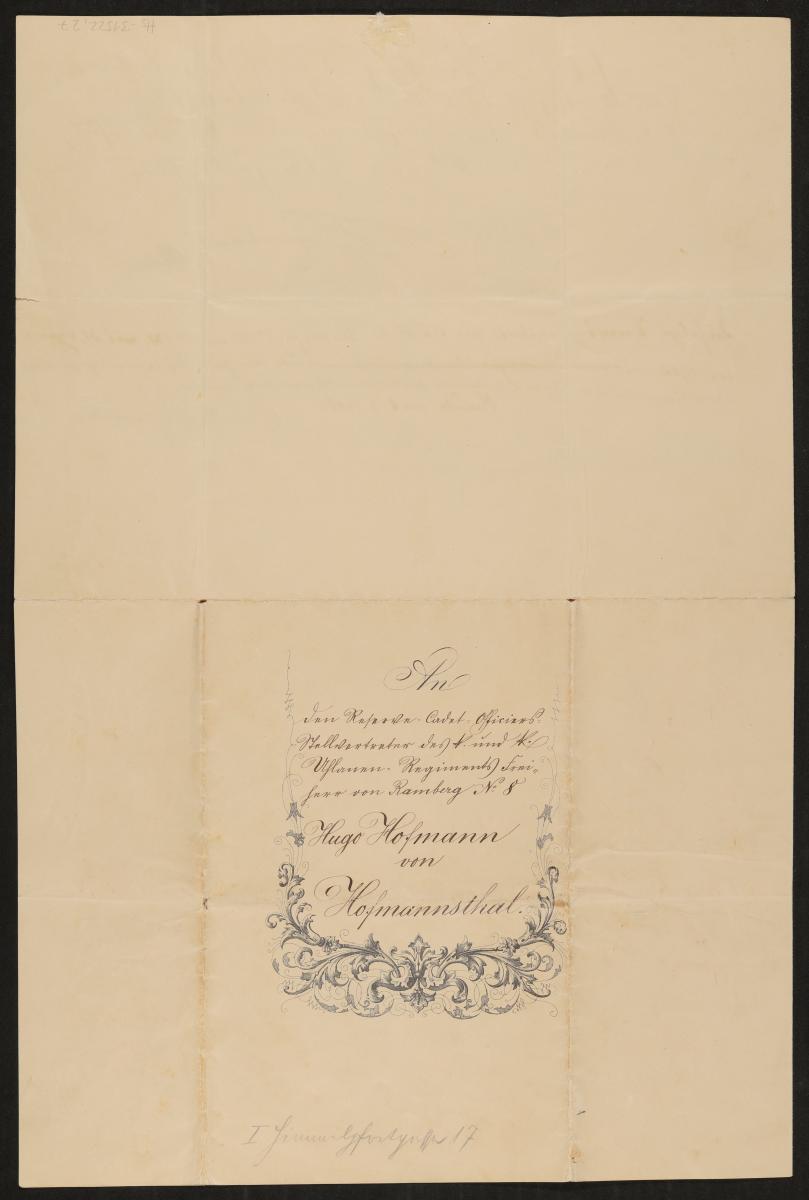 Hs-31522,27
An
den Reserve-Cadet-Officiers-
Stellvertreter des k. und k.
Uhlanen-Regiments Frei-
herr von Ramberg No. 8
Hugo Hofmann
von
Hofmannsthal.
I Himmelpfortgasse 17